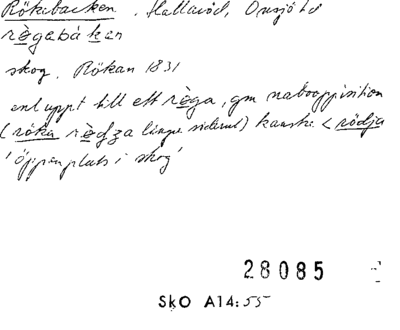 Rökabacken. Hallaröd, Onsjö hd
règabákan
skog. Rökan 1831
enl uppt till ett règa, gm nabooppisition
(röka rèdza längre söderut) kanske < rödja
'öppen plats i skog'
28085
SkO A14:55